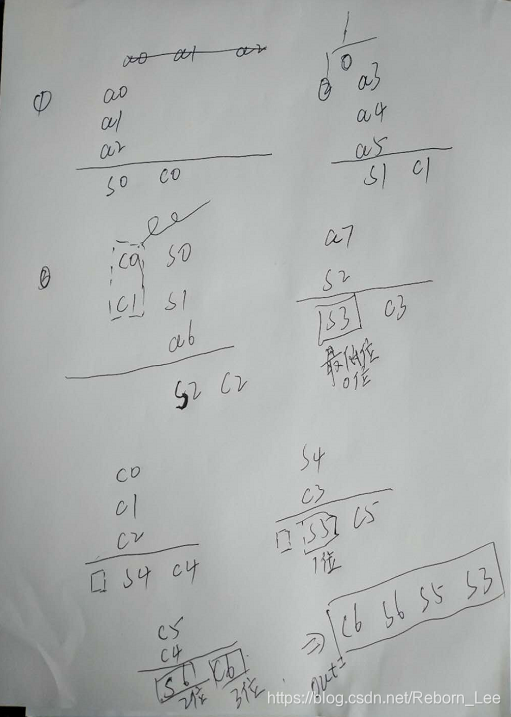 a0 a1 a2
①
a0
a1
a2
s0 c0
a3
a4
a5
s1 c1
②
c0 s0
c1 s1
a6
s2 c2
a7
s2
s3 c3
最低位
0位
c0
c1
c2
s4 c4
s4
c3
s5 c5
1位
c5
c4
s6 c6
2位 3位
⇒ c6 s6 s5 s3
out=
https://blog.csdn.net/Reborn_Lee